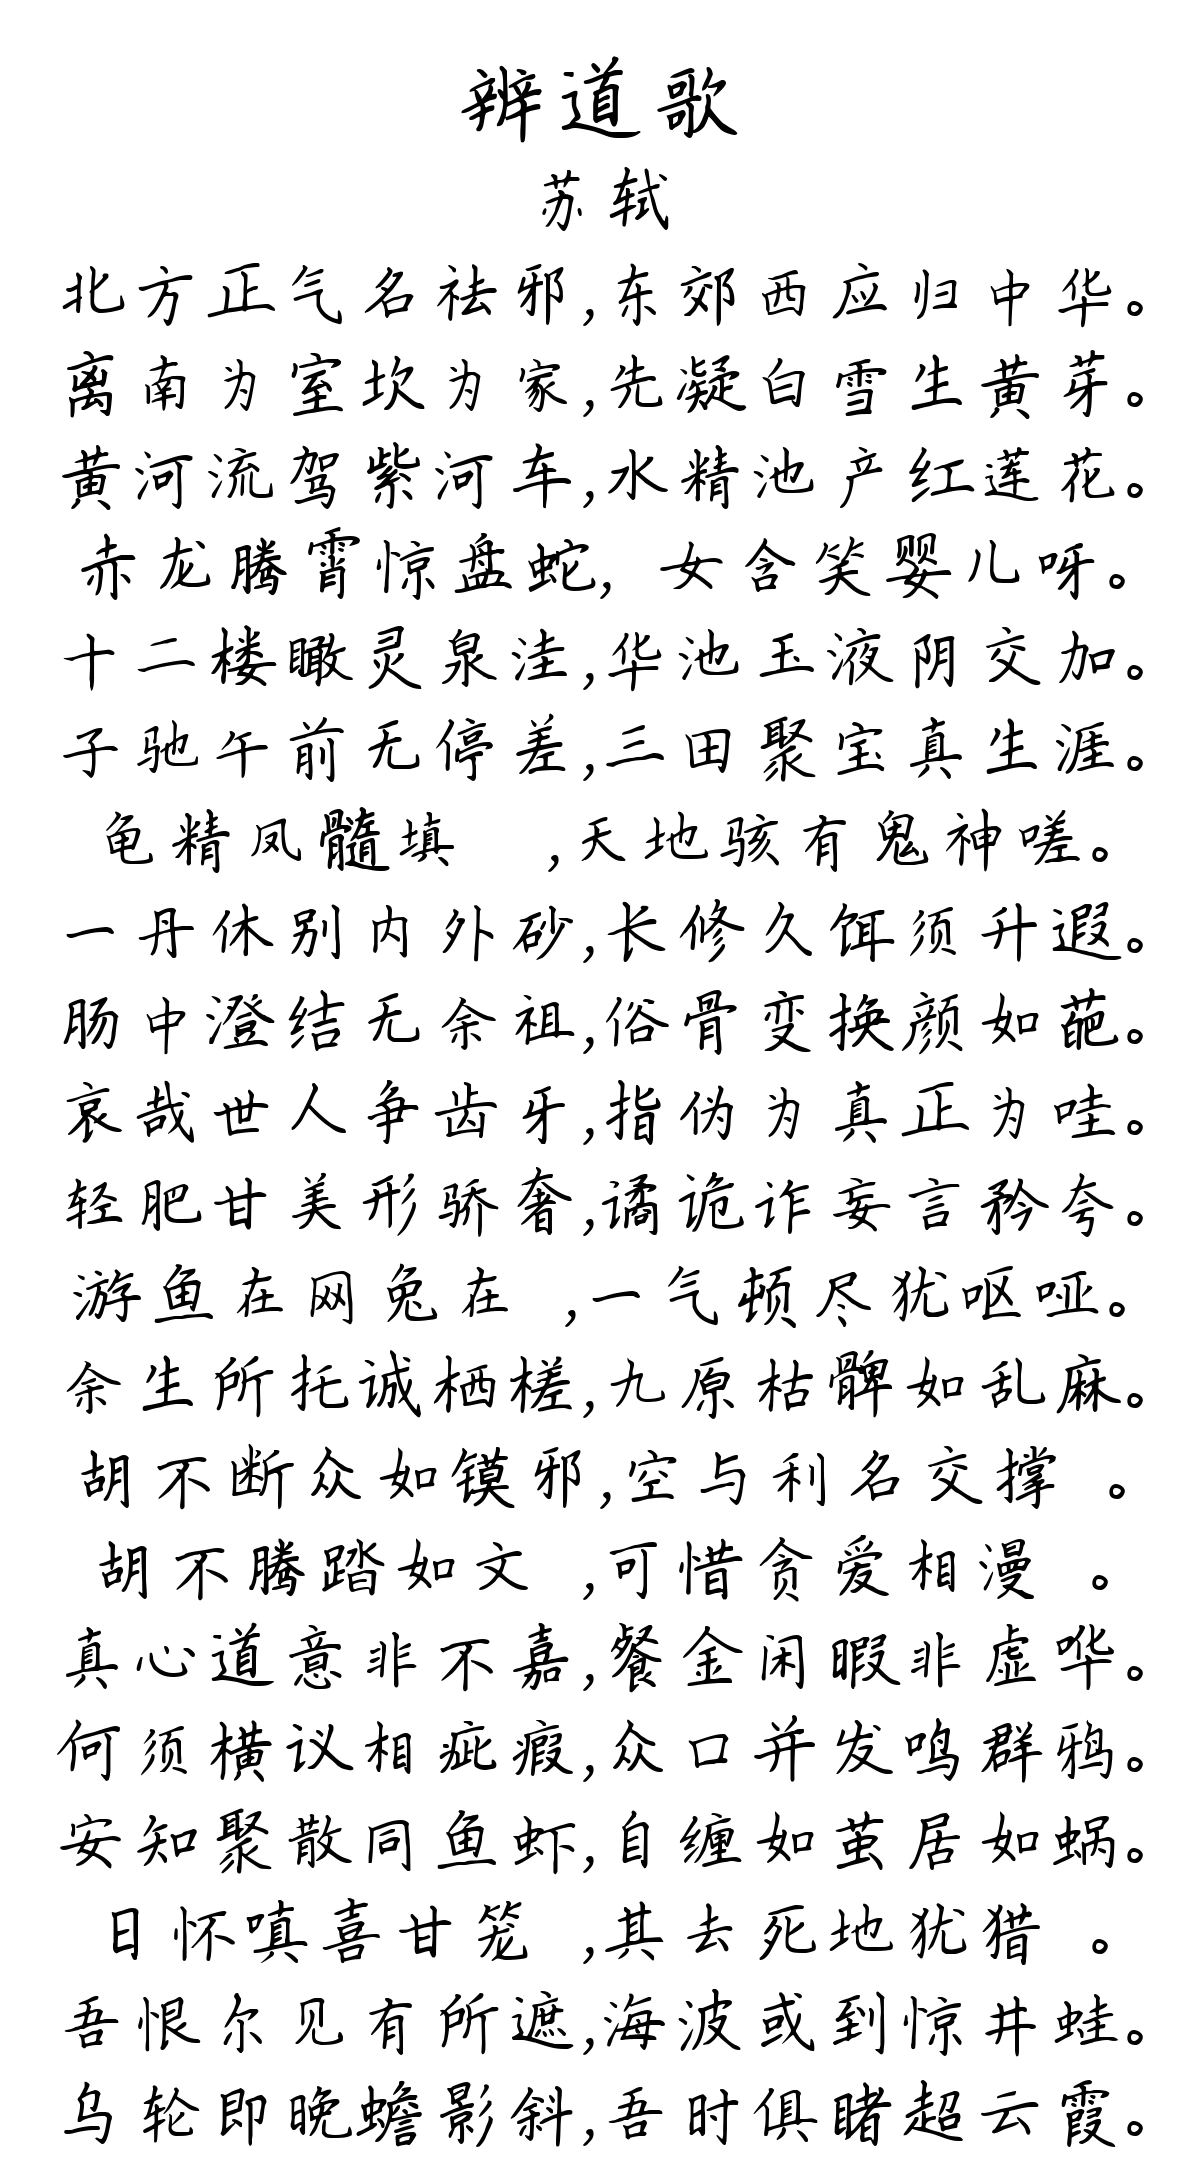 辨道歌
苏轼
北方正气名祛邪,东郊西应归中华。
离南为室坎为家,先凝白雪生黄芽。
黄河流驾紫河车,水精池产红莲花。
赤龙腾霄惊盘蛇, 女含笑婴儿呀。
十二楼瞰灵泉洼,华池玉液阴交加。
子驰午前无停差,三田聚宝真生涯。
龟精凤髓填 ,天地骇有鬼神嗟。
一丹休别内外砂,长修久饵须升遐。
肠中澄结无余祖,俗骨变换颜如葩。
哀哉世人争齿牙,指伪为真正为哇。
轻肥甘美形骄奢,谲诡诈妄言矜夸。
游鱼在网兔在 ,一气顿尽犹呕哑。
余生所托诚栖槎,九原枯髀如乱麻。
胡不断众如镆邪,空与利名交撑 。
胡不腾踏如文 ,可惜贪爱相漫 。
真心道意非不嘉,餐金闲暇非虚哗。
何须横议相疵瑕,众口并发鸣群鸦。
安知聚散同鱼虾,自缠如茧居如蜗。
日怀嗔喜甘笼 ,其去死地犹猎 。
吾恨尔见有所遮,海波或到惊井蛙。
乌轮即晚蟾影斜,吾时俱睹超云霞。